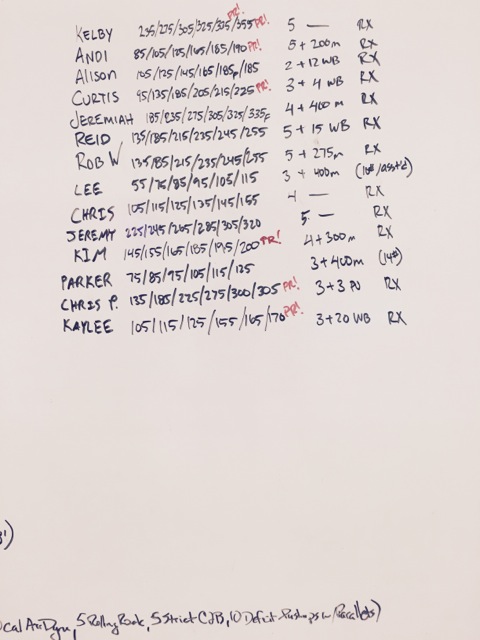 PR!
KELBY 235/275/305/325/335/355 PR! 5 — RX
ANDI 85/105/125/165/185/190 PR! 5 + 200m RX
Alison 105/125/145/165/185F/185 2 + 12 WB RX
CURTIS 95/135/185/205/215/225 PR! 3 + 4 WB RX
JEREMIAH 185/235/275/305/325/335F 4 + 400 m RX
REID 135/185/215/235/245/255 5 + 15 WB RX
ROB W 135/185/215/235/245/255 5 + 275m RX
LEE 55/75/85/95/105/115 3 + 400m (10#/asst'd)
CHRIS 105/115/125/135/145/155 4 — RX
JEREMY 225/245/265/285/305/320 5 — RX
KIM 145/155/165/185/195/200 PR! 4 + 300m RX
PARKER 75/85/95/105/115/135 3 + 400m (14#)
CHRIS P. 135/185/225/275/300/305 PR! 3 + 3 PU RX
KAYLEE 105/115/125/155/165/170 PR! 3 + 20 WB RX
5 Strict C2B, 10 Deficit Pushups w/ Parallets)